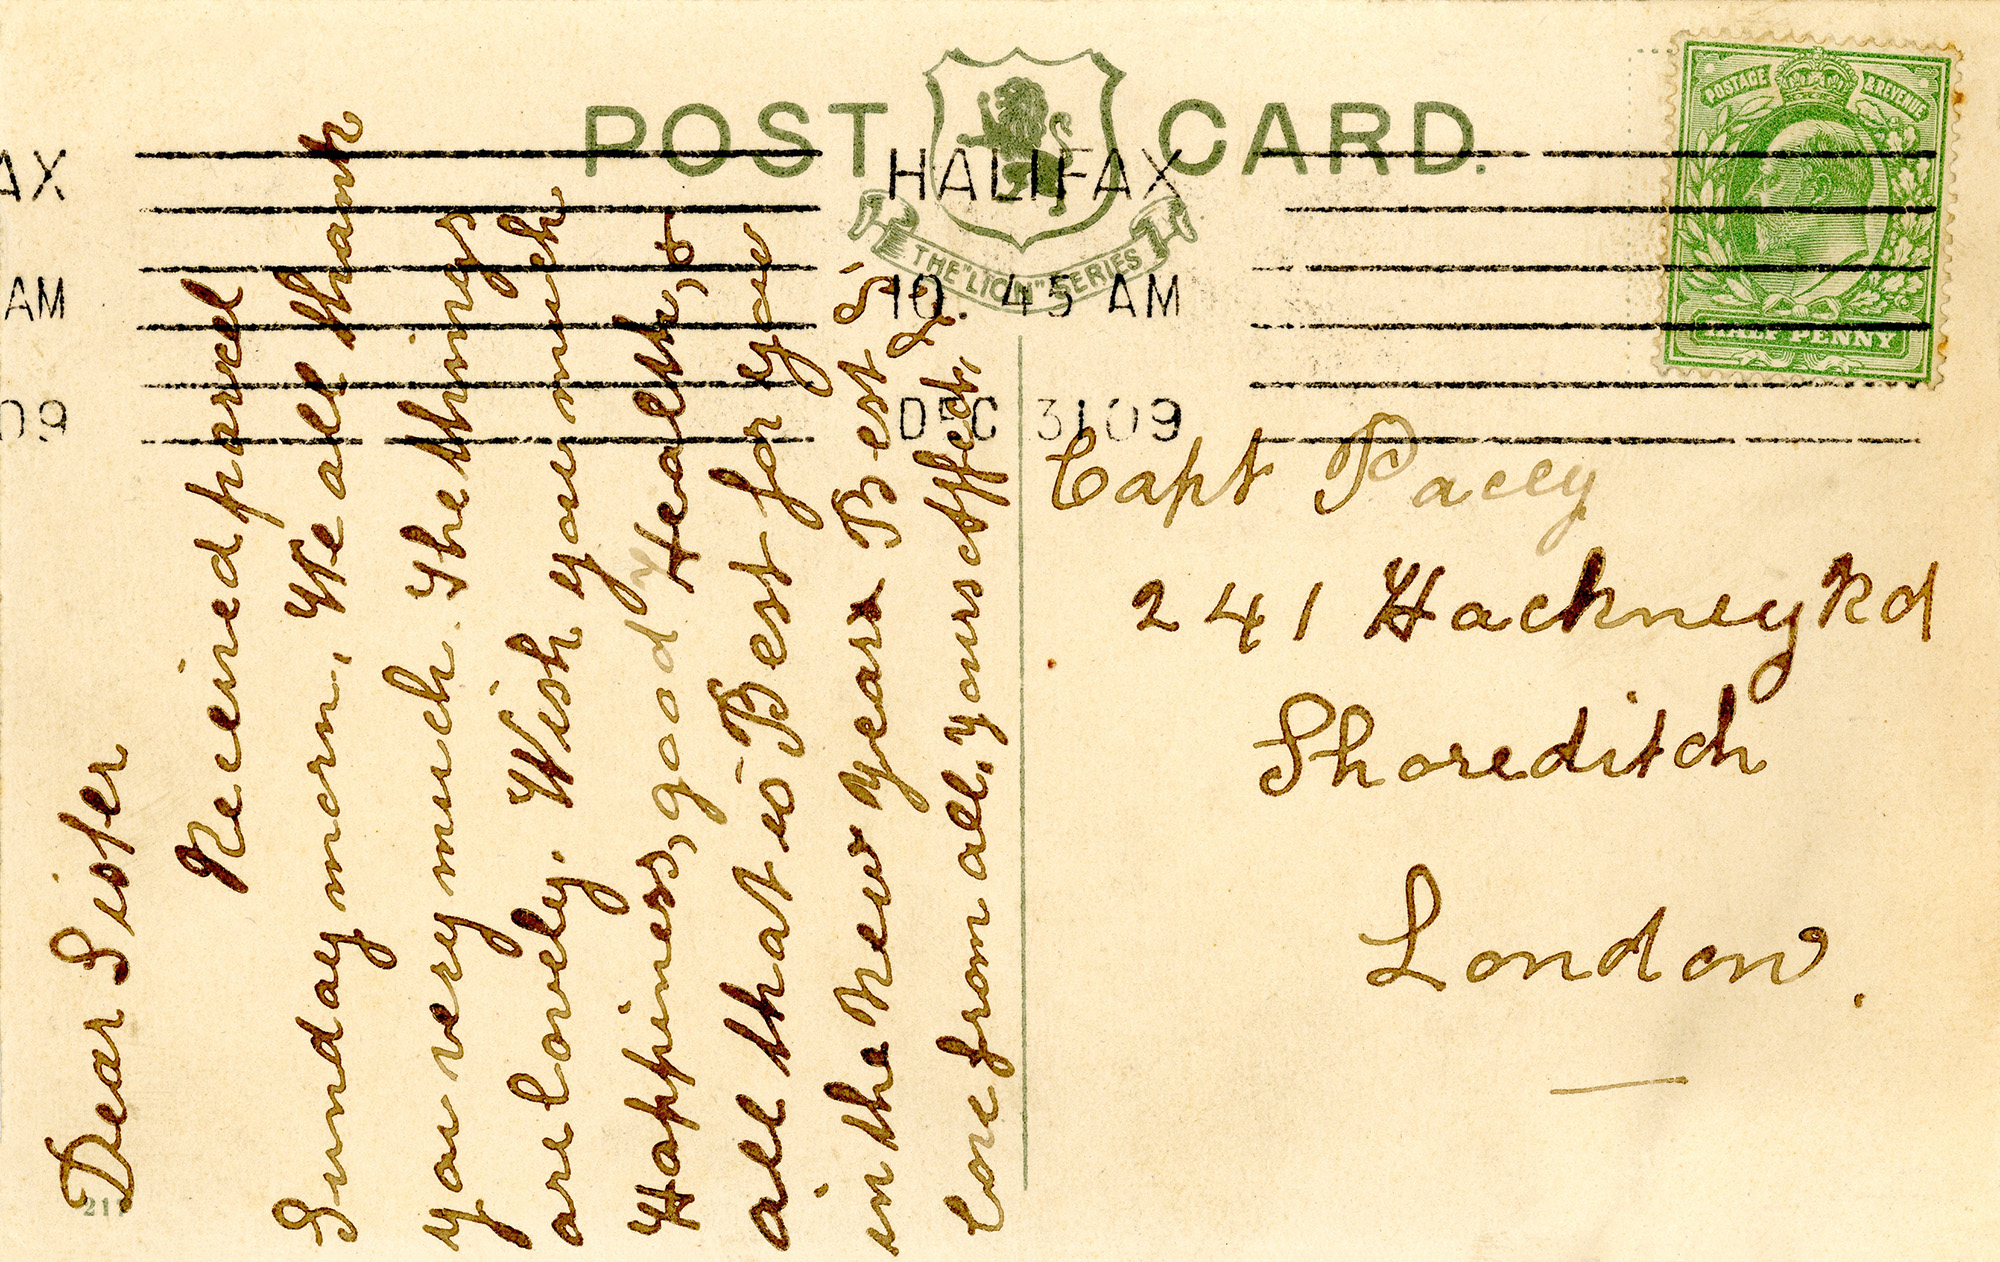 POST CARD.
THE "LION" SERIES
POSTAGE & REVENUE
HALF PENNY
HALIFAX
10. 45 AM
DEC 31 09
AX
AM
09
Capt Pacey
241 Hackney Rd
Shoreditch
London.
Dear Sister
Received parcel
Sunday morn. We all thank
you very much. The things
are lovely. Wish you much
Happiness, good Health, &
all that is Best for you
in the New Years Best
love from all, yours Affect,